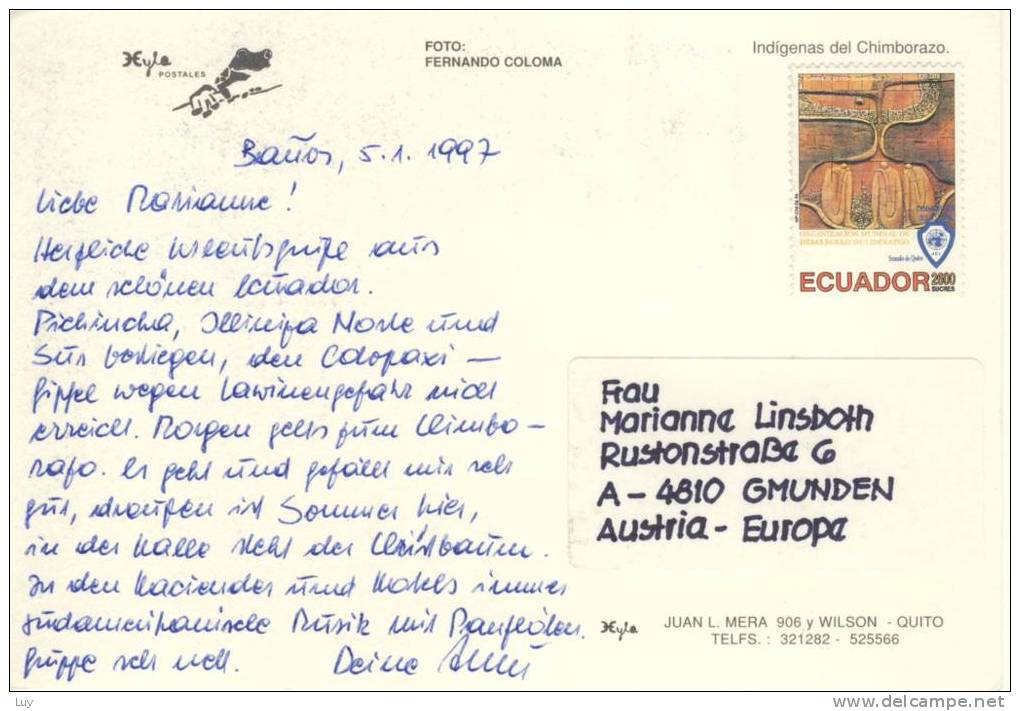 Hyla
POSTALES
FOTO:
FERNANDO COLOMA
Indígenas del Chimborazo.
ECUADOR 2600
SUCRES
Baños, 5.1.1997
Liebe Marianne!
Herzliche Urlaubsgrüße aus
dem schönen Ecuador.
Pichincha, Illiniza Norte und
Sur bestiegen, den Cotopaxi-
gipfel wegen Lawinengefahr nicht
erreicht. Morgen gehts zum Chimbo-
razo. Es geht und gefällt mir sehr
gut, draußen ist Sommer hier,
in der Halle steht der Christbaum.
In den Haciendas und Hotels immer
südamerikanische Musik mit Panflöten.
Gruppe sehr nett. Deine
Frau
Marianne Linsboth
Rustonstraße 6
A-4810 GMUNDEN
Austria-Europe
Hyla
JUAN L. MERA 906 y WILSON - QUITO
TELFS.: 321282 - 525566
Luy
www.delcampe.net